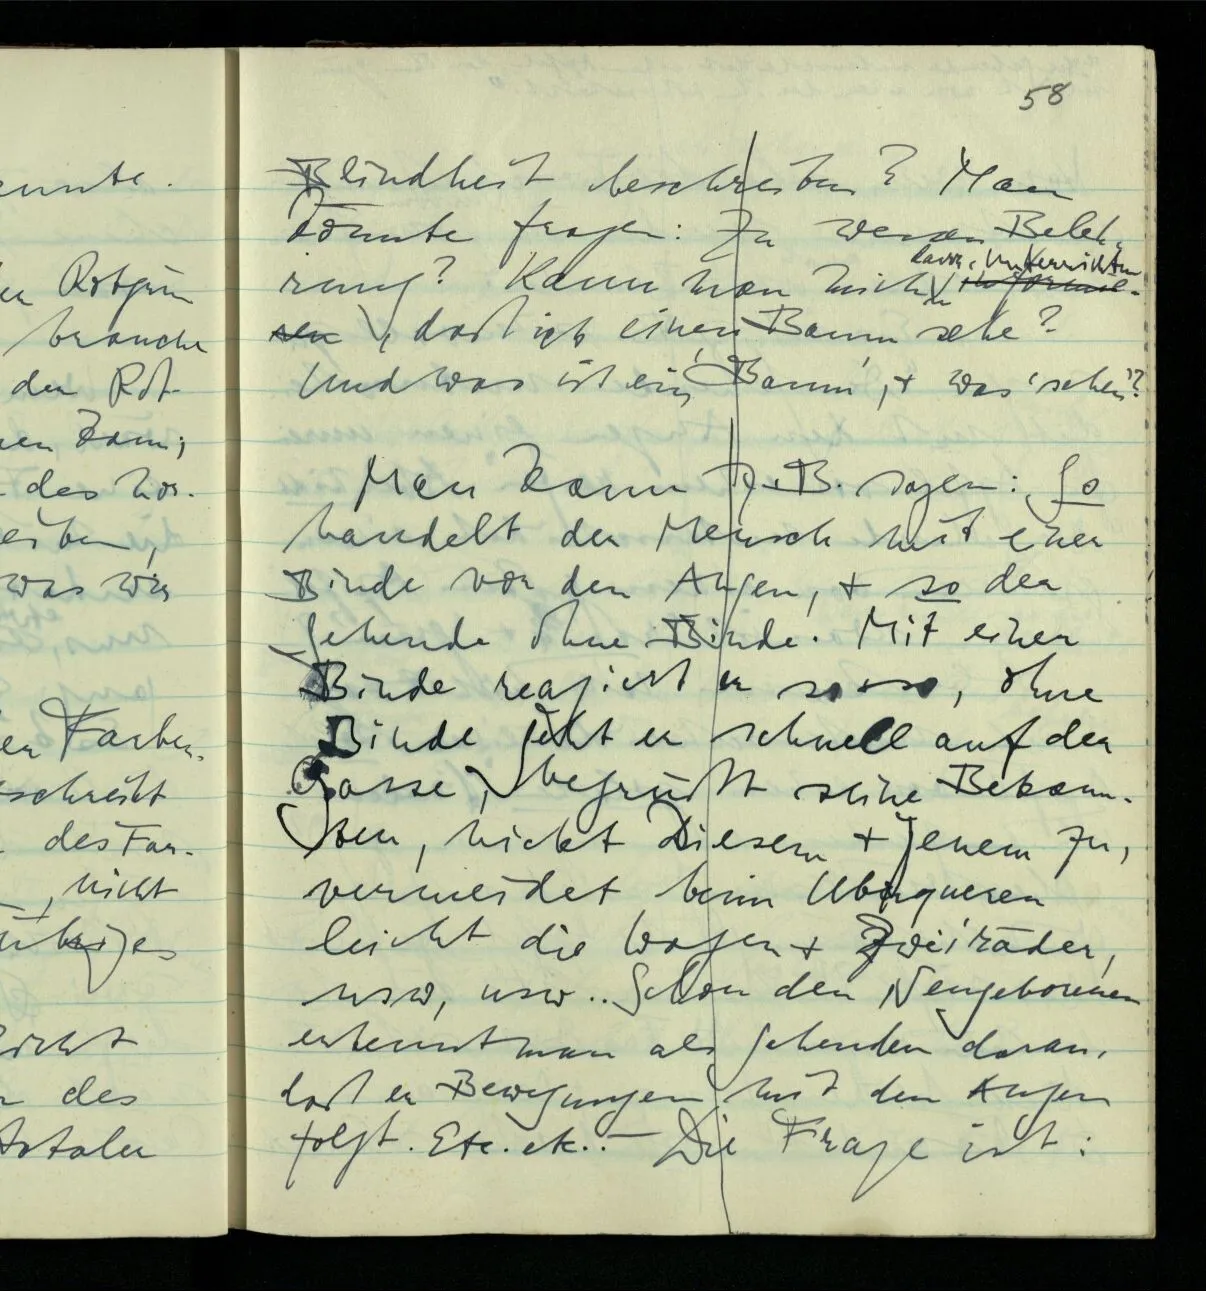 58
Blindheit beschreiben? Man
könnte fragen: Zu wessen Beleh-
rung? Kann man mich davon unterrichten
, daß ich einen Baum sehe?
Und was ist ein 'Baum', + was 'sehen'?
Man kann z.B. sagen: So
handelt der Mensch mit einer
Binde vor den Augen, + so der
Sehende ohne Binde. Mit einer
Binde reagiert er so + so, ohne
Binde geht er schnell auf der
Gasse, begrüßt seine Bekann-
ten, nickt Diesem + Jenem zu,
vermeidet beim Überqueren
leicht die Wagen + Zweiräder,
usw, usw.. Schon den Neugeborenen
erkennt man als Sehenden daran,
daß er Bewegungen mit den Augen
folgt. Etc. etc.. – Die Frage ist:
nicht
des
brauche
was wir